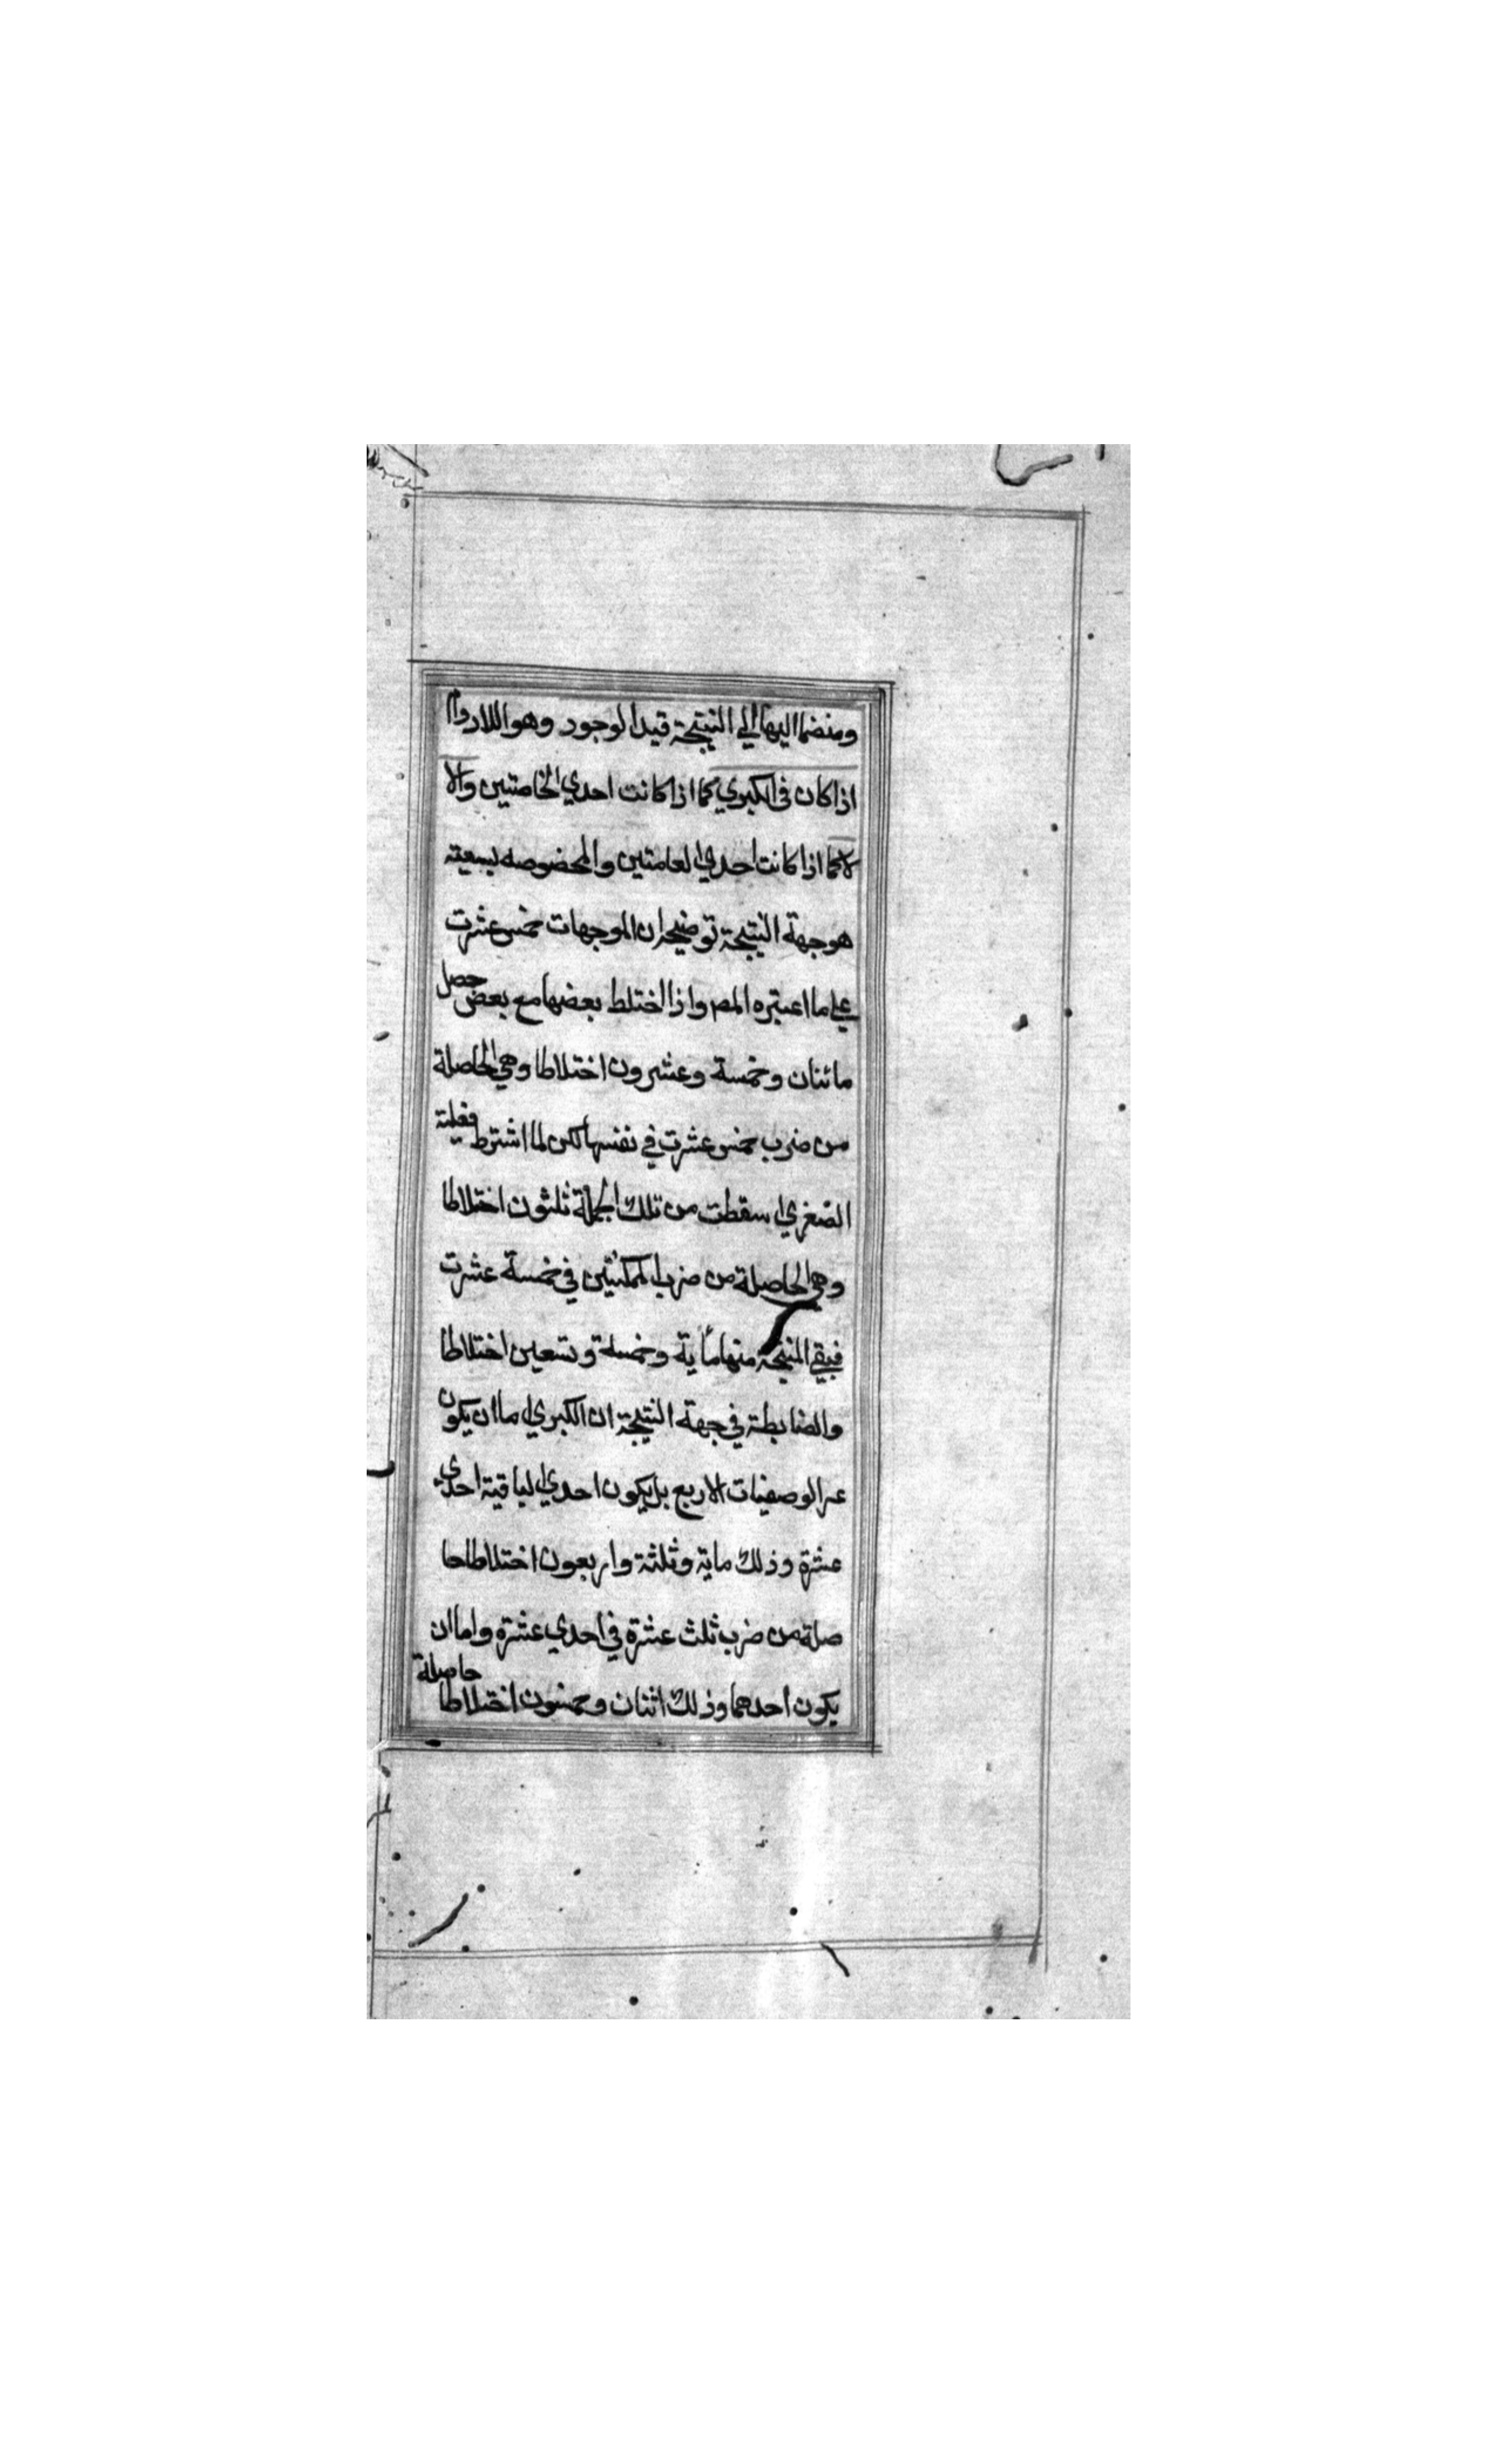 ومنضما اليها الي النتيجة قيد الوجود وهو اللادوام
اذا كان في الكبري كما اذا كانت احدي الخاصتين والا
لا كما اذا كانت احدي العامتين والمخصوصه
هو جهة النتيجة توضيحه ان الموجهات خمس عشرت
علي ما اعتبره المص واذا اختلط بعضها مع بعض حصل
مائتان وخمسة وعشرون اختلاطا وهي الحاصلة
من ضرب خمس عشرت في نفسها لكن لما اشترط فعلية
الصغري اسقطت من تلك الجملة ثلثون اختلاطا
وهي الحاصلة من ضرب الممكنتين في خمسة عشرت
فبقي المنتجة منها ماية وخمسة وتسعين اختلاطا
والضابطة في جهة النتيجة ان الكبري اما ان يكون
غير الوصفيات الاربع بل يكون احدي الباقية احدي
عشرة وذلك ماية وثلثة واربعون اختلاطا حا
صلة من ضرب ثلث عشرة في احدي عشرة واما ان
يكون احدهما وذلك اثنان وخمسون اختلاطا حاصلة